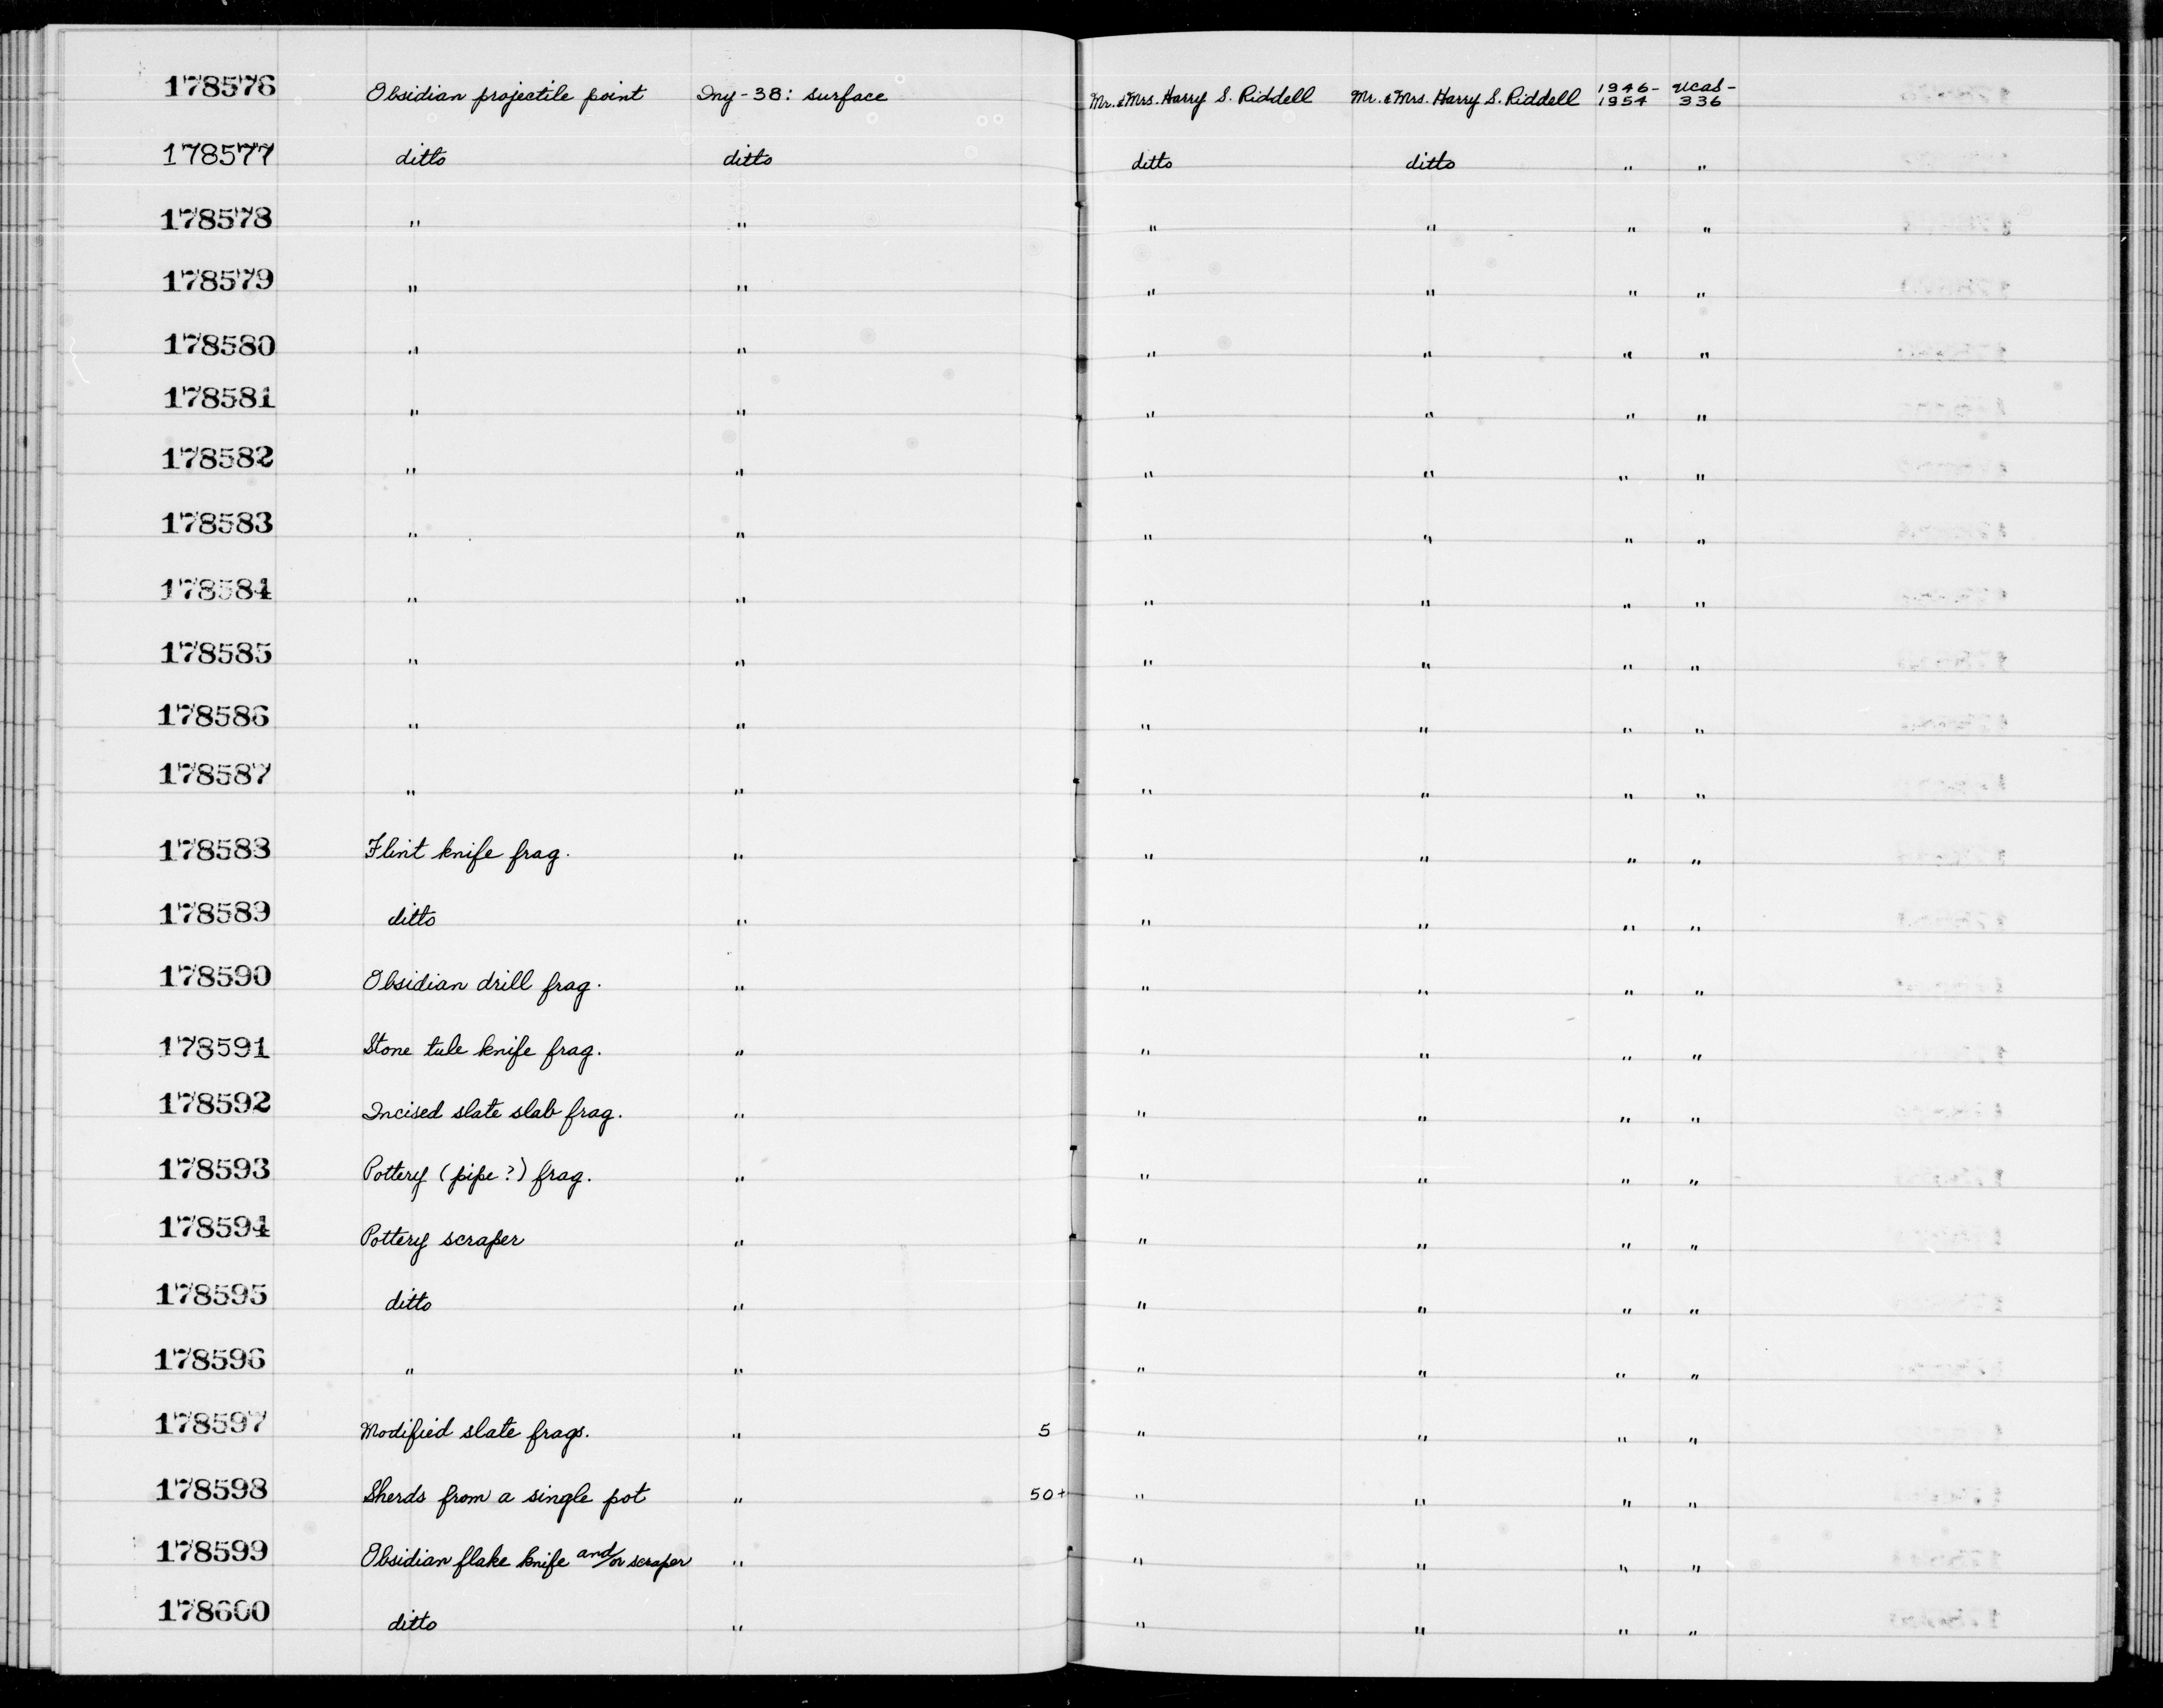 178576 Obsidian projectile point Iny-38: surface Mr. & Mrs. Harry S. Riddell Mr. & Mrs. Harry S. Riddell 1946-1954 UCAS-336
178577 ditto ditto ditto ditto " "
178578 " " " " " "
178579 " " " " " "
178580 " " " " " "
178581 " " " " " "
178582 " " " " " "
178583 " " " " " "
178584 " " " " " "
178585 " " " " " "
178586 " " " " " "
178587 " " " " " "
178588 Flint knife frag. " " " " "
178589 ditto " " " " "
178590 Obsidian drill frag. " " " " "
178591 Stone tule knife frag. " " " " "
178592 Incised slate slab frag. " " " " "
178593 Pottery (pipe?) frag. " " " " "
178594 Pottery scraper " " " " "
178595 ditto " " " " "
178596 " " " " " "
178597 Modified slate frags. " 5 " " " "
178598 Sherds from a single pot " 50+ " " " "
178599 Obsidian flake knife and/or scraper " " " " "
178600 ditto " " " " "